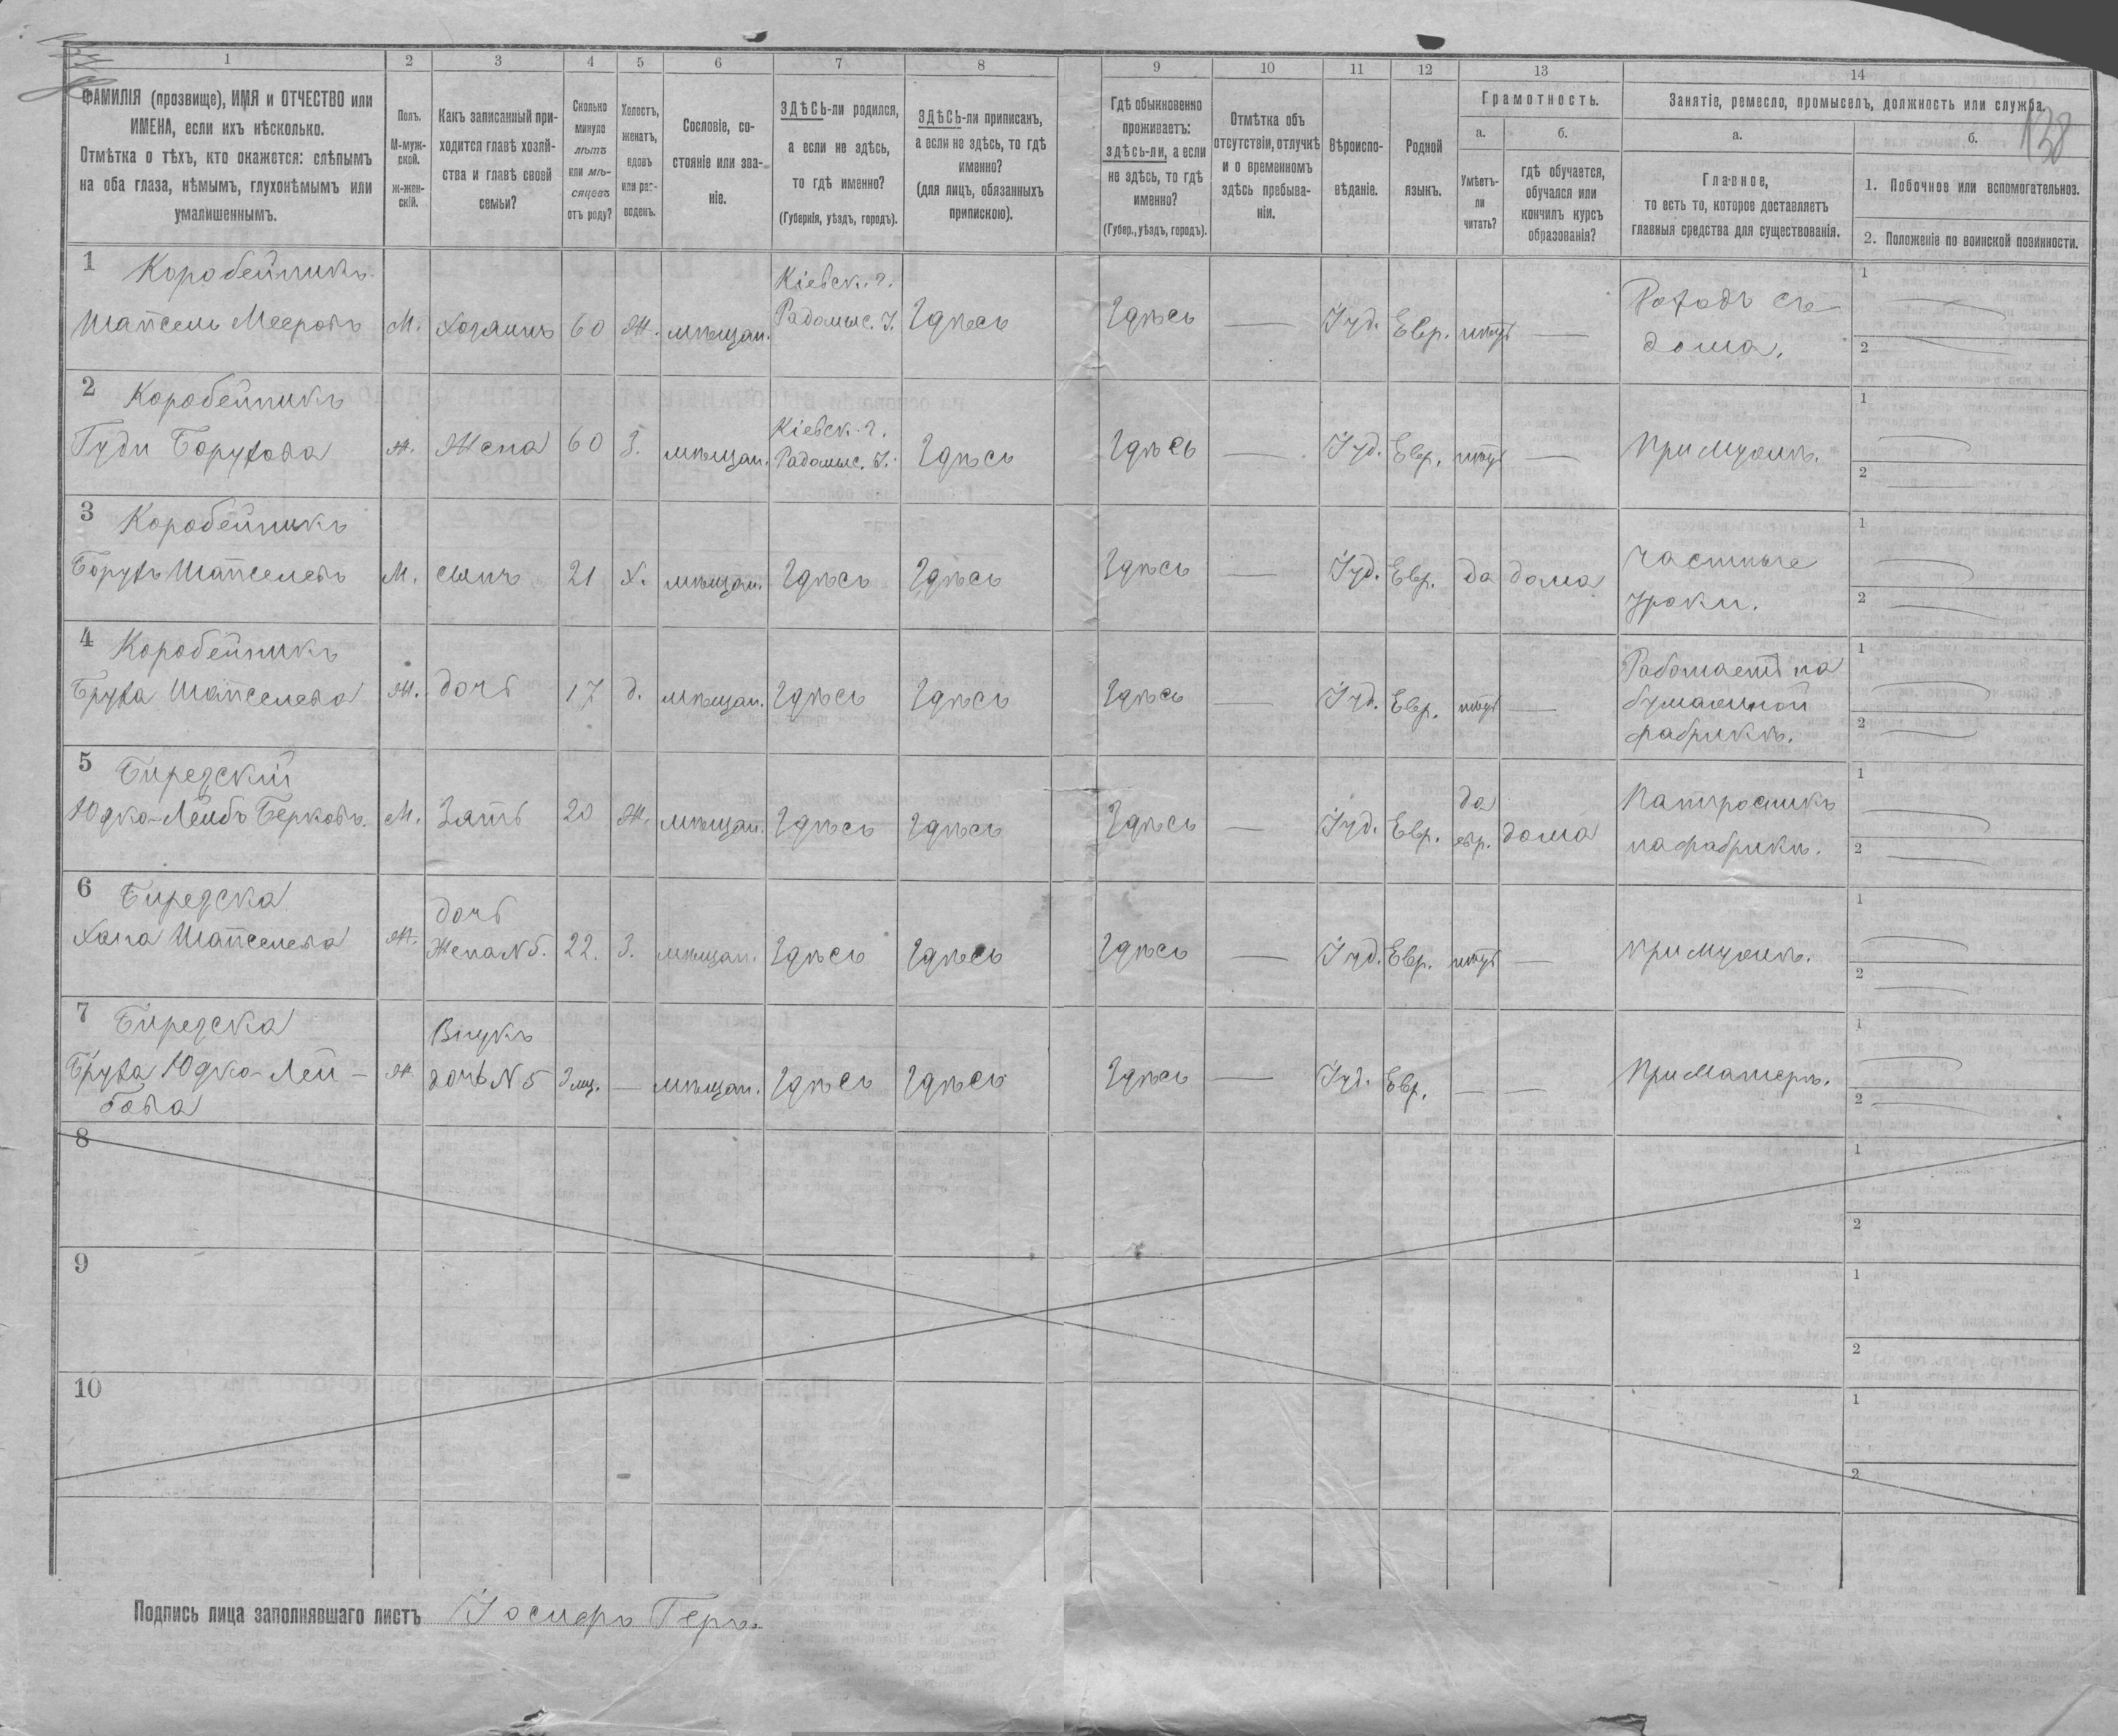 138
1 2 3 4 5 6 7 8 9 10 11 12 13 14
ФАМИЛІЯ (прозвище), ИМЯ и ОТЧЕСТВО или
ИМЕНА, если ихъ нѣсколько.
Отмѣтка о тѣхъ, кто окажется: слѣпымъ
на оба глаза, нѣмымъ, глухонѣмымъ или
умалишеннымъ.
Полъ.
М-муж-
ской.
ж-жен-
скій.
Какъ записанный при-
ходится главѣ хозяй-
ства и главѣ своей
семьи?
Сколько
минуло
лѣтъ
или мѣ-
сяцевъ
отъ роду?
Холостъ,
женатъ,
вдовъ
или раз-
веденъ.
Сословіе, со-
стояніе или зва-
ніе.
ЗДѢСЬ-ли родился,
а если не здѣсь,
то гдѣ именно?
(Губернія, уѣздъ, городъ).
ЗДѢСЬ-ли приписанъ,
а если не здѣсь, то гдѣ
именно?
(для лицъ, обязанныхъ
припискою).
Гдѣ обыкновенно
проживаетъ:
здѣсь-ли, а если
не здѣсь, то гдѣ
именно?
(Губер., уѣздъ, городъ).
Отмѣтка объ
отсутствіи, отлучкѣ
и о временномъ
здѣсь пребыва-
ніи.
Вѣроиспо-
вѣданіе.
Родной
языкъ.
Грамотность.
а. б.
Умѣетъ-
ли
читать?
гдѣ обучается,
обучался или
кончилъ курсъ
образованія?
Занятіе, ремесло, промыселъ, должность или служба.
а. б.
Главное,
то есть то, которое доставляетъ
главныя средства для существованія.
1. Побочное или вспомогательное.
2. Положеніе по воинской повинности.
1 Коробейникъ Кіевск. г. 1
Шапсель Мееровъ М. Хозяинъ 60 Ж. мѣщан. Радомыс. у. Здѣсь Здѣсь — Іуд. Евр. нѣтъ — Доходъ съ
дома. 2
2 Коробейникъ Кіевск. г. 1
Гуди Борухова ж. Жена 60 З. мѣщан. Радомыс. у. Здѣсь Здѣсь — Іуд. Евр. нѣтъ — при мужѣ. 2
3 Коробейникъ 1
Борухъ Шапселевъ М. сынъ 21 Х. мѣщан. Здѣсь Здѣсь Здѣсь — Іуд. Евр. да дома частные
уроки. 2
4 Коробейникъ 1
Бруха Шапселева ж. дочь 17 д. мѣщан. Здѣсь Здѣсь Здѣсь — Іуд. Евр. нѣтъ — Работаетъ на
бумажной
фабрикѣ. 2
5 1
Юдко-Лейбъ Берковъ. М. Зять 20 Ж. мѣщан. Здѣсь Здѣсь Здѣсь — Іуд. Евр. да евр. дома
на фабрикѣ. 2
6 дочь 1
Хана Шапселева ж. Жена N 5. 22. З. мѣщан. Здѣсь Здѣсь Здѣсь — Іуд. Евр. нѣтъ — при мужѣ. 2
7 Внукъ 1
Бруха Юдко-Лей- ж. дочь N 5 3 мц. — мѣщан. Здѣсь Здѣсь Здѣсь — Іуд. Евр. — — При матерѣ. 2
бова
8 1
2
9 1
2
10 1
2
Подпись лица заполнявшаго листъ Іосифъ Геръ.